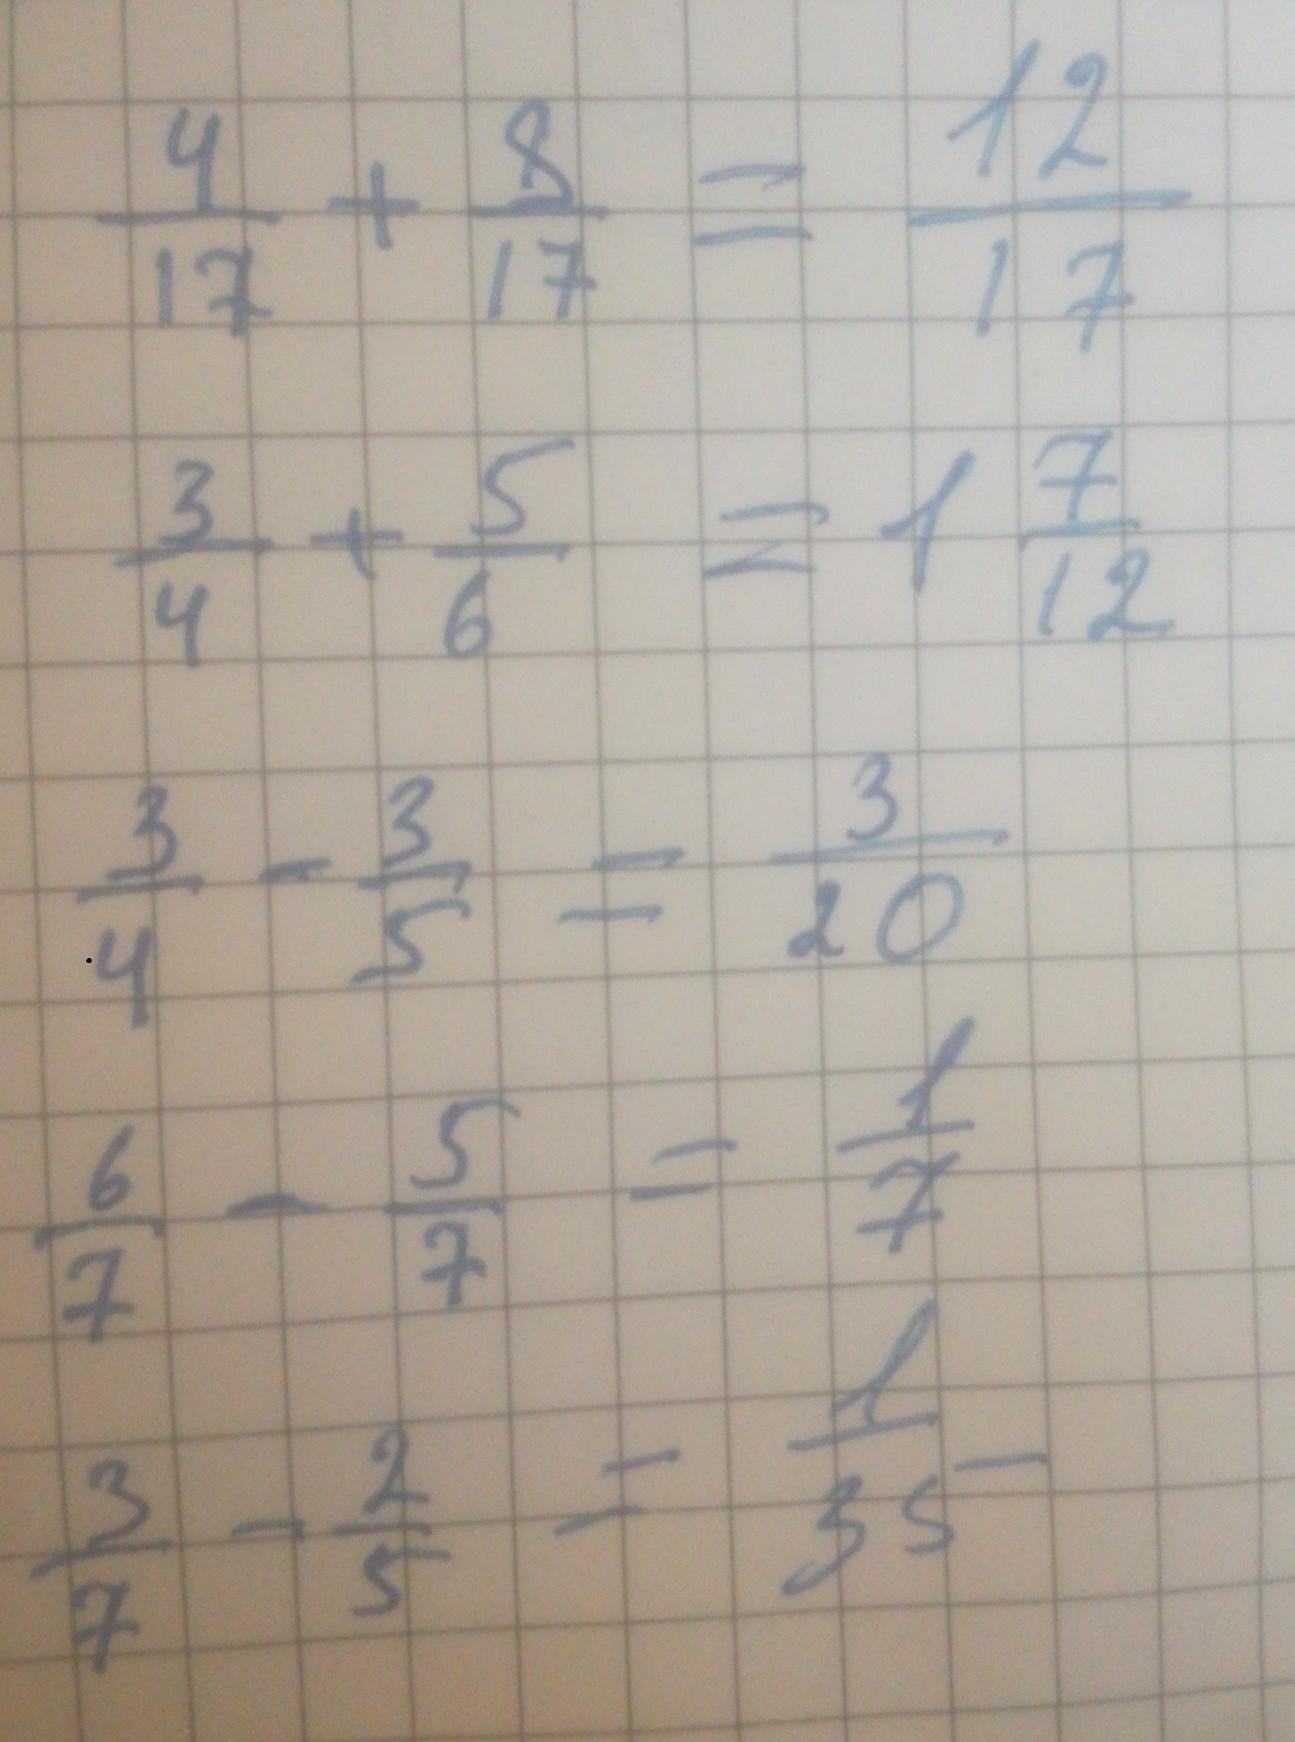 4/17 + 8/17 = 12/17
3/4 + 5/6 = 1 7/12
3/4 - 3/5 = 3/20
6/7 - 5/7 = 1/7
3/7 - 2/5 = 1/35